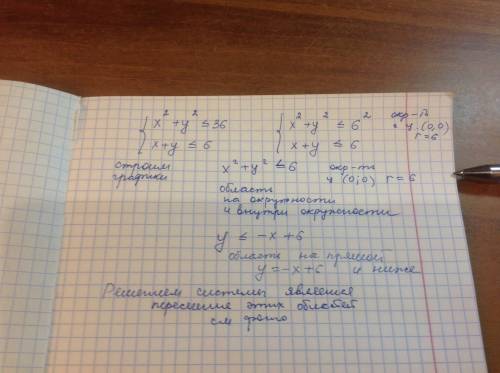 { x² + y² ≤ 36
x + y ≤ 6
{ x² + y² ≤ 6²
x + y ≤ 6
окр-ть
ц. (0,0)
r = 6
строим
графики
x² + y² ≤ 6
окр-ть
ц (0;0) r = 6
область
на окружности
и внутри окружности
y ≤ -x + 6
область на прямой
y = -x + 6 и ниже
Решением системы является
пересечение этих областей
см фото